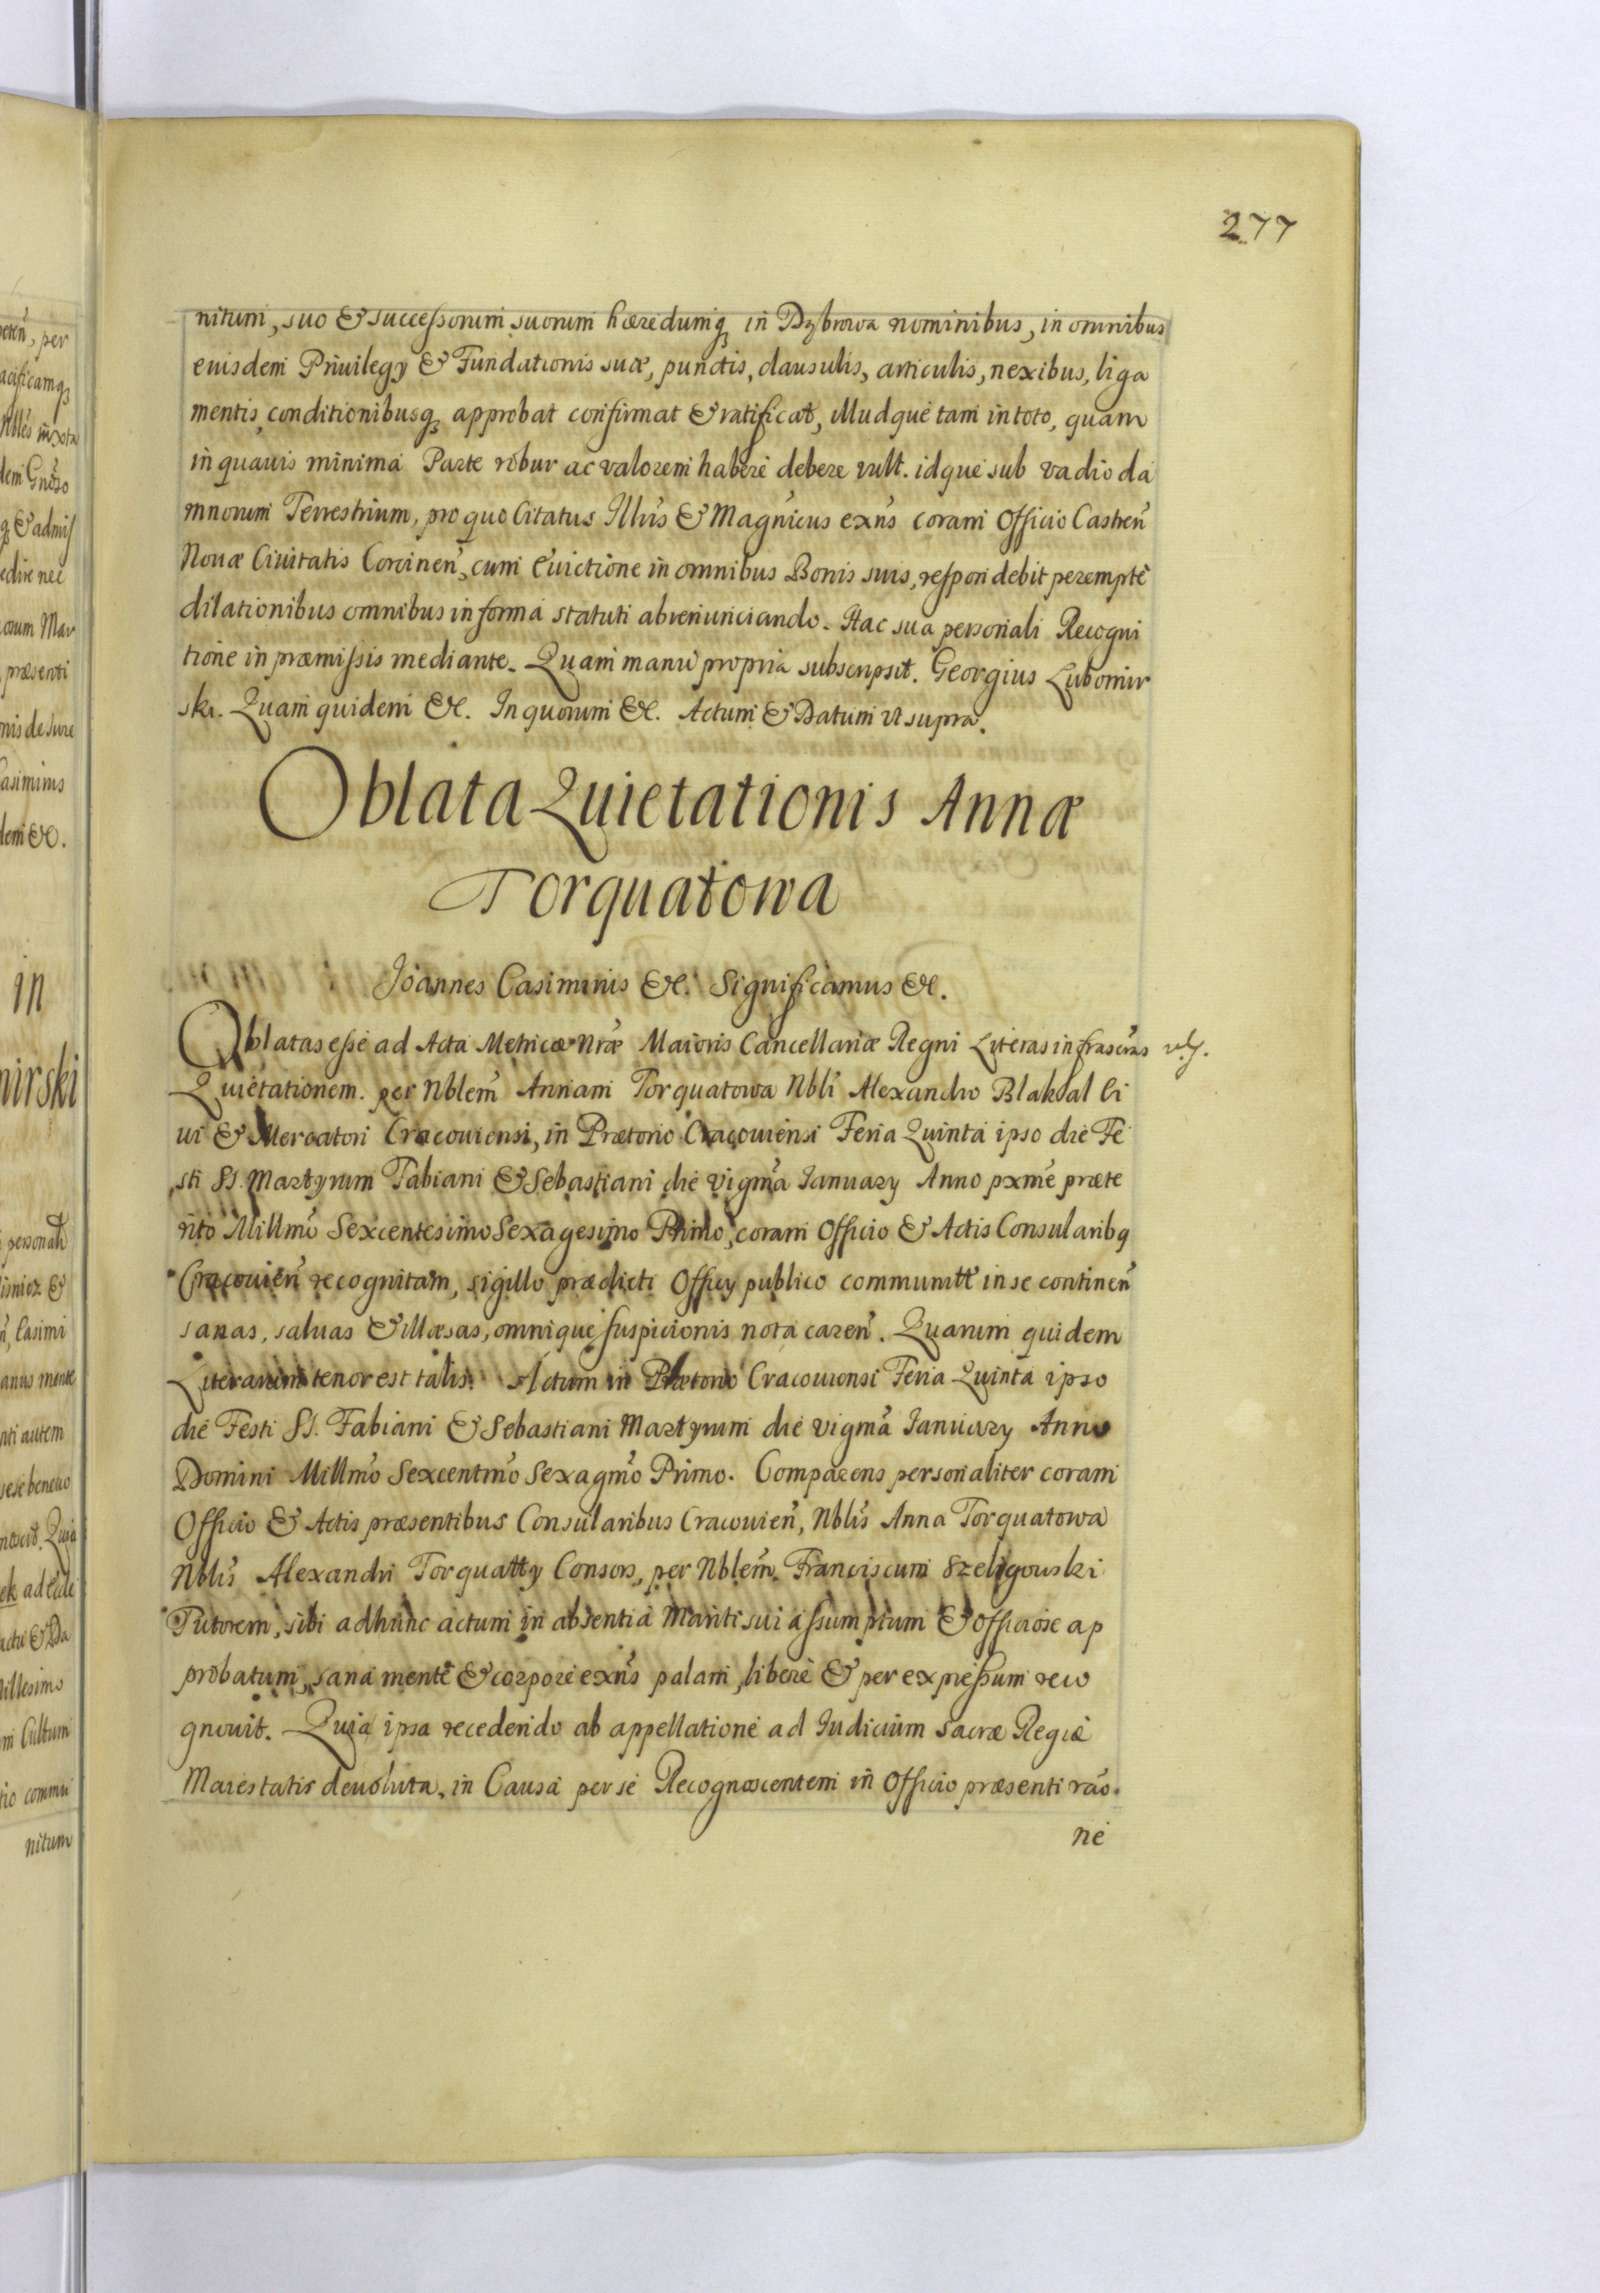 277
nitum, suo & successorum suorum hæredumq₃ in Dąbrowa nominibus, in omnibus
euisdem Priuilegy & Fundationis suæ, punctis, clausulis, articulis, nexibus, liga
mentis, conditionibusq₃ approbat confirmat & ratificat, illudque tam in toto, quam
in quauis minima Parte robur ac valorem habere debere vult. idque sub vadio da
mnorum Terrestrium, pro quo Citatus Illris & Magnicus exñs coram Officio Castreñ
Nouæ Ciuitatis Corcineñ, cum Euictione in omnibus Bonis suis, respondebit perempte
dilationibus omnibus in forma statuti abrenunciando. Hac sua personali Recogni
tione in præmissis mediante. Quam manu propria subscripsit. Georgius Lubomir
ski. Quam quidem &c. In quorum &c. Actum & Datum vt supra.
Oblata Quietationis Annæ
Torquatowa
Joannes Casimirus &c. Significamus &c.
Oblatas esse ad Acta Metricæ Nræ Maioris Cancellariæ Regni Literas infrascras
Quietationem per Nblem Annam Torquatowa Nbli Alexandro Blakhal Ci
ui & Mercatori Cracouiensi, in Prætorio Cracouiensi Feria Quinta ipso die Fe
sti SS. Martyrum Fabiani & Sebastiani die vigma January Anno pxme præte
rito Millmo Sexcentesimo Sexagesimo Primo, coram Officio & Actis Consularibq
Cracouieñ recognitam, sigillo prædicti Officy publico communitt in se contineñ
sanas, saluas & illæsas, omnique suspicionis nota careñ. Quarum quidem
Literarum tenor est talis. Actum in Prætorio Cracouiensi Feria Quinta ipso
die Festi SS. Fabiani & Sebastiani Martyrum die vigma January Anno
Domini Millmo Sexcentmo Sexagmo Primo. Comparens personaliter coram
Officio & Actis præsentibus Consularibus Cracouieñ, Nblis Anna Torquatowa
Nblis Alexandri Torquatty Consors, per Nblem Franciscum Szeligowski
Tutorem, sibi ad hunc actum in absentia Mariti sui assumptum & officiose ap
probatum, sana mente & corpore exñs palam, libere & per expressum reco
gnouit. Quia ipsa recedendo ab appellatione ad Iudicium Sacræ Regiæ
Maiestatis deuoluta, in Causa per se Recognoscentem in Officio præsenti rao.
ne